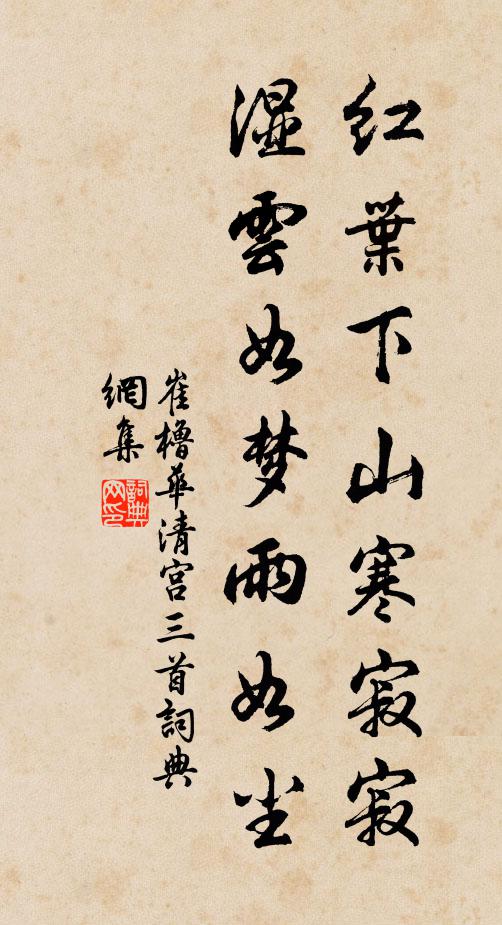 红葉下山寒寂寂
湿雲如梦雨如尘
崔櫓華清宫三首詞典
網集
詞典
网印